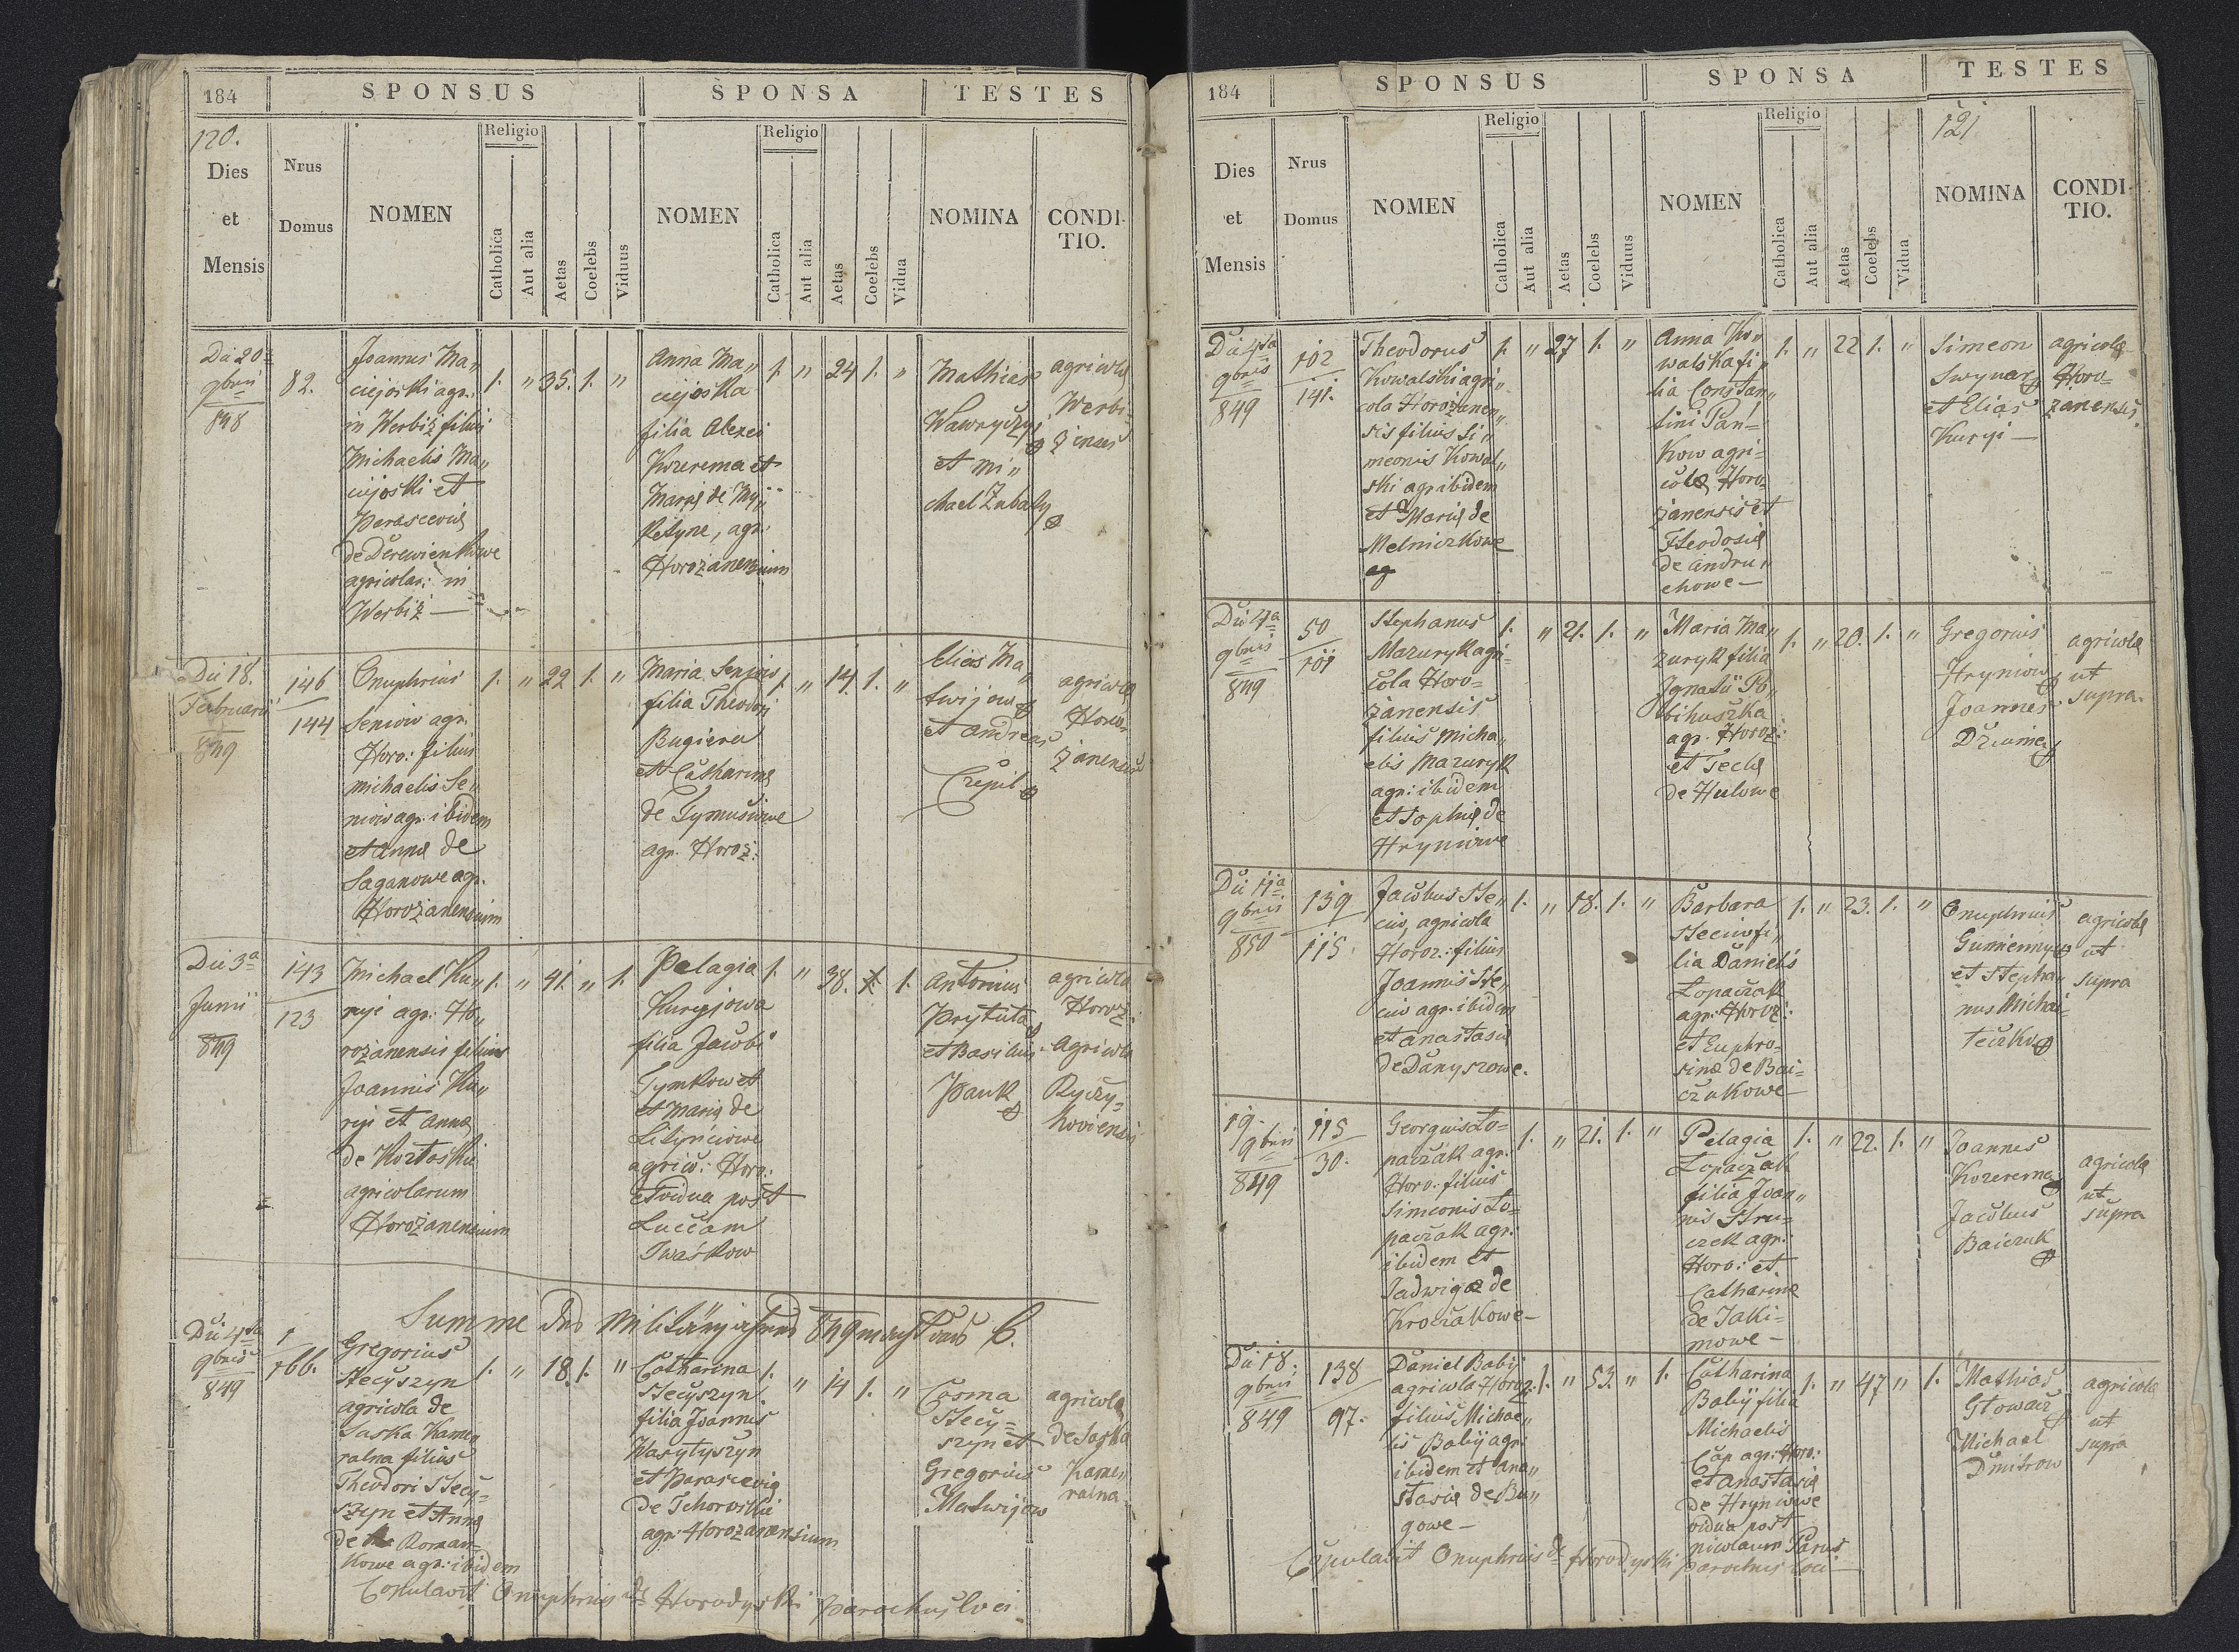 184 SPONSUS SPONSA TESTES
120.
Dies et Mensis
Nrus Domus
NOMEN
Religio
Catholica
Aut alia
Aetas
Coelebs
Viduus
NOMEN
Religio
Catholica
Aut alia
Aetas
Coelebs
Vidua
NOMINA
CONDI-
TIO.
Die 20
9bris
848
82.
Joannes Ma„
ciejoski agr.
in Werbiż filius
Michaelis Ma„
ciejoski et
Parascevię
de Derewienkowe
agricolar: in
Werbiż —
1. „ 35. 1. „
Anna Ma„
ciejoska
filia Alexei
Kozerema et
Marię de
agr:
Horożanensium
1. „ 24 1. „
Mathias
Wawryczyj
et Mi„
chael Zubaly
agricolę
Werbi=
żenses
Die 18.
Februarii
849
146
144
Onuphrius
Seniow agr.
Horo: filius
Michaelis Se„
niow agr. ibidem
et Annę de
Saganowe agr.
Horożanensium
1. „ 22 1. „
Maria Seniow
filia Theodori
Bugiera
et Catharinę
de Tymusiowe
agr. Horoż:
1. „ 14. 1. „
Elias Ma„
twijow
et Andreas
Czepil
agricolę
Horo„
żanenses
Die 3a
Junii
849
143
123
Michael Ku„
ryj agr: Ho„
rożanensis filius
Joannis Ku„
ryj et Annę
de Koztoskie
agricolarum
Horożanensium
1. „ 41. „ 1.
Pelagia
Kuryjowa
filia Jacobi
Tymkow et
et Marię de
agrico: Horo:
et vidua post
Luccam
Iwaśkow
1. „ 38. 1. 1.
Antonius
Prytuła
et Basilius
Pauk
agricola
Horoż:
agricola
Ryczy=
hoviensis
Summe des Militärjahres 849 macht aus 6.
Die 4ta
9bris
849
1
166.
Gregorius
Stecyszyn
agricola de
Saska Kame„
ralna filius
Theodori Stecy=
szyn et Annę
de Roman=
kowe agr: ibidem
1. „ 18. 1. „
Catharina
Stecyszyn
filia Joannis
Wasylyszyn
et Parascevię
de Tchorowskie
agr: Horożanensium
1. „ 14 1. „
Cosma
Stecy=
szyn et
Gregorius
Matwijow
agricolę
de Saska
Kame„
ralna
Copulavit Onuphrius de Horodyski parochus loci
184 SPONSUS SPONSA TESTES
121
Dies et Mensis
Nrus Domus
NOMEN
Religio
Catholica
Aut alia
Aetas
Coelebs
Viduus
NOMEN
Religio
Catholica
Aut alia
Aetas
Coelebs
Vidua
NOMINA
CONDI-
TIO.
Die 4ta
9bris
849
102
141.
Theodorus
Kowalski agri„
cola Horożanen„
sis filius Si„
meonis Kowal„
ski agr ibidem
et Marię de
Melniczkowe
ag
1. „ 27 1. „
Anna Ko„
walska fi„
lia Constan„
tini Pań=
kow agri=
colę Horo=
żanensis et
Theodosię
de Andru„
chowe —
1. „ 22 1. „
Simeon
Swynar
et Elias
Kuryj —
agricolę
Horo=
żanenses
Die 4ta
9bris
849
50
101
Stephanus
Mazuryk agri=
cola Horo=
żanensis
filius Micha„
elis Mazuryk
agr: ibidem
et Sophię de
Hryniowe
1. „ 21. 1. „
Maria Ma„
zuryk filia
Ignatii Po„
bihuszka
agr. Horoż:
et Teclę
de Hulowe
1. „ 20. 1. „
Gregorius
Hryniow
Joannes
Dziuma
agricolę
ut
supra.
Die 11a
9bris
850
139
115.
Jacobus Ste„
ciw, agricola
Horoz: filius
Joannis Ste„
ciw agr: ibidem
et Anastasię
de Danyszowe.
1. „ 18. 1. „
Barbara
Steciw fi„
lia Danielis
Łopaczak
agr: Horoż:
et Euphro=
sinę de Bai=
czukowe —
1. „ 23. 1. „
Onuphrius
Gumiennyj
et Stepha„
nus Michai=
leczko
agricolę
ut
supra
19.
9bris
849
115
30.
Georgius Ło=
paczak agr.
Horo: filius
Simeonis Ło=
paczak agr:
ibidem et
Jadwigę de
Kroczakowe —
1. „ 21. 1. „
Pelagia
Łopaczak
filia Joan„
nis Stru=
czek agr:
Horo: et
Catharinę
de Jaki=
mowe —
1. „ 22. 1. „
Joannes
Kozerema
Jacobus
Baiczuk
agricolę
ut
supra
Die 18.
9bris
849
138
97.
Daniel Babij
agricola Horoż:
filius Michae„
lis Babij agr:
ibidem et Ana„
stasię de Bu„
gowe —
1. „ 53. „ 1.
Catharina
Babij filia
Michaelis
Cap agr: Horo:
et Anastasię
de Hryniowe
vidua post
Nicolaum Parus
1. „ 47 „ 1.
Mathias
Głowacz
Michael
Dmitrow
agricolę
ut
supra
Copulavit Onuphrius de Horodyski parochus loci —